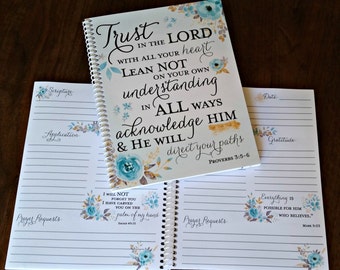 Trust
IN THE LORD
WITH ALL YOUR heart
LEAN NOT
ON YOUR OWN
understanding
IN ALL WAYS
acknowledge HIM
& HE WILL
direct your paths
PROVERBS 3:5-6
Scripture
Application
I WILL NOT
FORGET YOU
I HAVE CARVED
YOU ON THE
palm of my hand
ISAIAH 49:15
Prayer Requests
Date
Gratitude
Everything is
POSSIBLE FOR HIM
WHO BELIEVES."
MARK 9:23
Prayer Requests